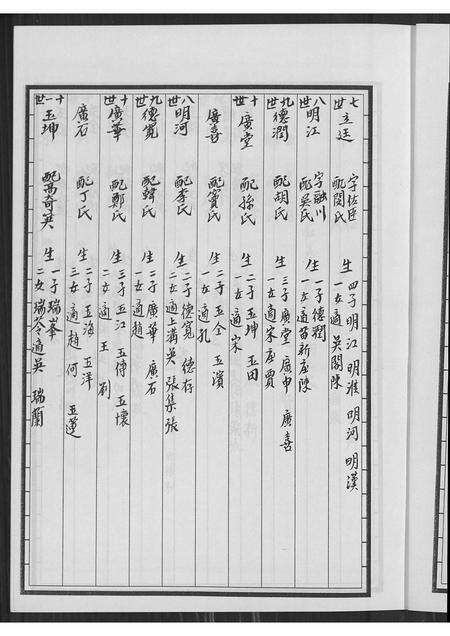 七世
立廷
字佐臣
配閔氏
生
四子 明江 明淮 明河 明漢
一女適吳閣陳
八世
明江
字融川
配吳氏
生
一子德潤
一女適苗新庄陳
九世
德潤
配胡氏
生
三子廣堂 廣申 廣喜
一女適宋庄賈
十世
廣堂
配孫氏
生
二子玉坤 玉田
一女適宋
廣喜
配竇氏
生
二子玉全 玉濱
一女適孔
八世
明河
配李氏
生
二子德寬 德存
二女適上溝吳 張集張
九世
德寬
配韓氏
生
二子廣華 廣石
一女適趙
十世
廣華
配鄭氏
生
三子玉江 玉傳 玉懷
二女適王 劉
廣石
配丁氏
生
二子玉海 玉洋
三女適趙 何 玉蓮
十一世
玉坤
配馬奇英
生
一子瑞峯
二女瑞苓適吳 瑞蘭